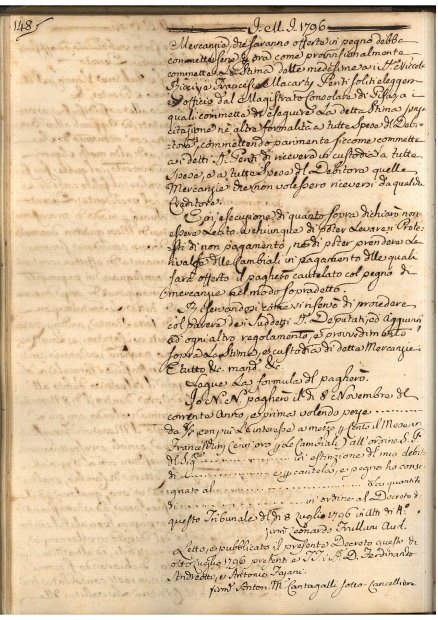 148
J. M. J. 1796
Mercanzie, che saranno offerte in pegno debba
commettersene, e ora come provvisionalmente
commette la Stima delle medesime a i SS.ri Niccolò
e Francesco Macarty Periti soliti eleggersi
ex officio dal Magistrato Consolare di Pisa, a i
quali commette di eseguire la detta Stima senza
citazione, nè altra formalità a tutte Spese del Debi-
tore, commettendo parimente siccome commette
a i detti SS. Periti di ricevere in custodia a tutte
Spese, e a tutte Spese del Debitore quelle
Mercanzie che non volessero riceversi da qualche
Creditore.
E più esecuzione di quanto sopra dichiarò non
essere Lecito a chiunque di poter Levare i Prote-
sti di non pagamento, nè di poter prendere La
rivalsa delle Cambiali in pagamento delle quali
sarà offerto il pagherò cautelato col pegno di
mercanzie nel modo sopradetto.
Riservandosi come riservò di procedere
col parere dei suddetti SS. Deputati, ed Aggiunti
ad ogni altro regolamento, e provvedimento
sopra la Stima, e custodia di dette Mercanzie
E tutto &c. mand. &c.
Segue La formula del pagherò.
Io N. N. pagherò li di 8 Novembre del
corrente Anno, e prima volendo pezze
da 8/r con più l'interesse a mezzo per cento il Mese in
Francesconi (e in oro per le Cambiali) all'ordine S. P.
del Sig. in estinzione del mio debito
di e per cautela, e pegno ho conse-
gnato al una quantità
di in ordine al Decreto di
questo Tribunale del dì 8 Luglio 1796 in Atti di N.o
firm. Leonardo Frullani Aud.
Letto, e pubblicato il presente Decreto questo dì
otto Luglio 1796 presenti e TT. i S. D. Ferdinando
Andreotti, e Antonio Fajani.
firm. Anton M.a Cantagalli Sotto-Cancelliere